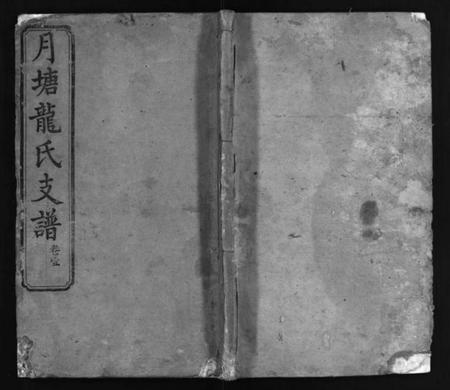 月塘龍氏支譜
卷壹